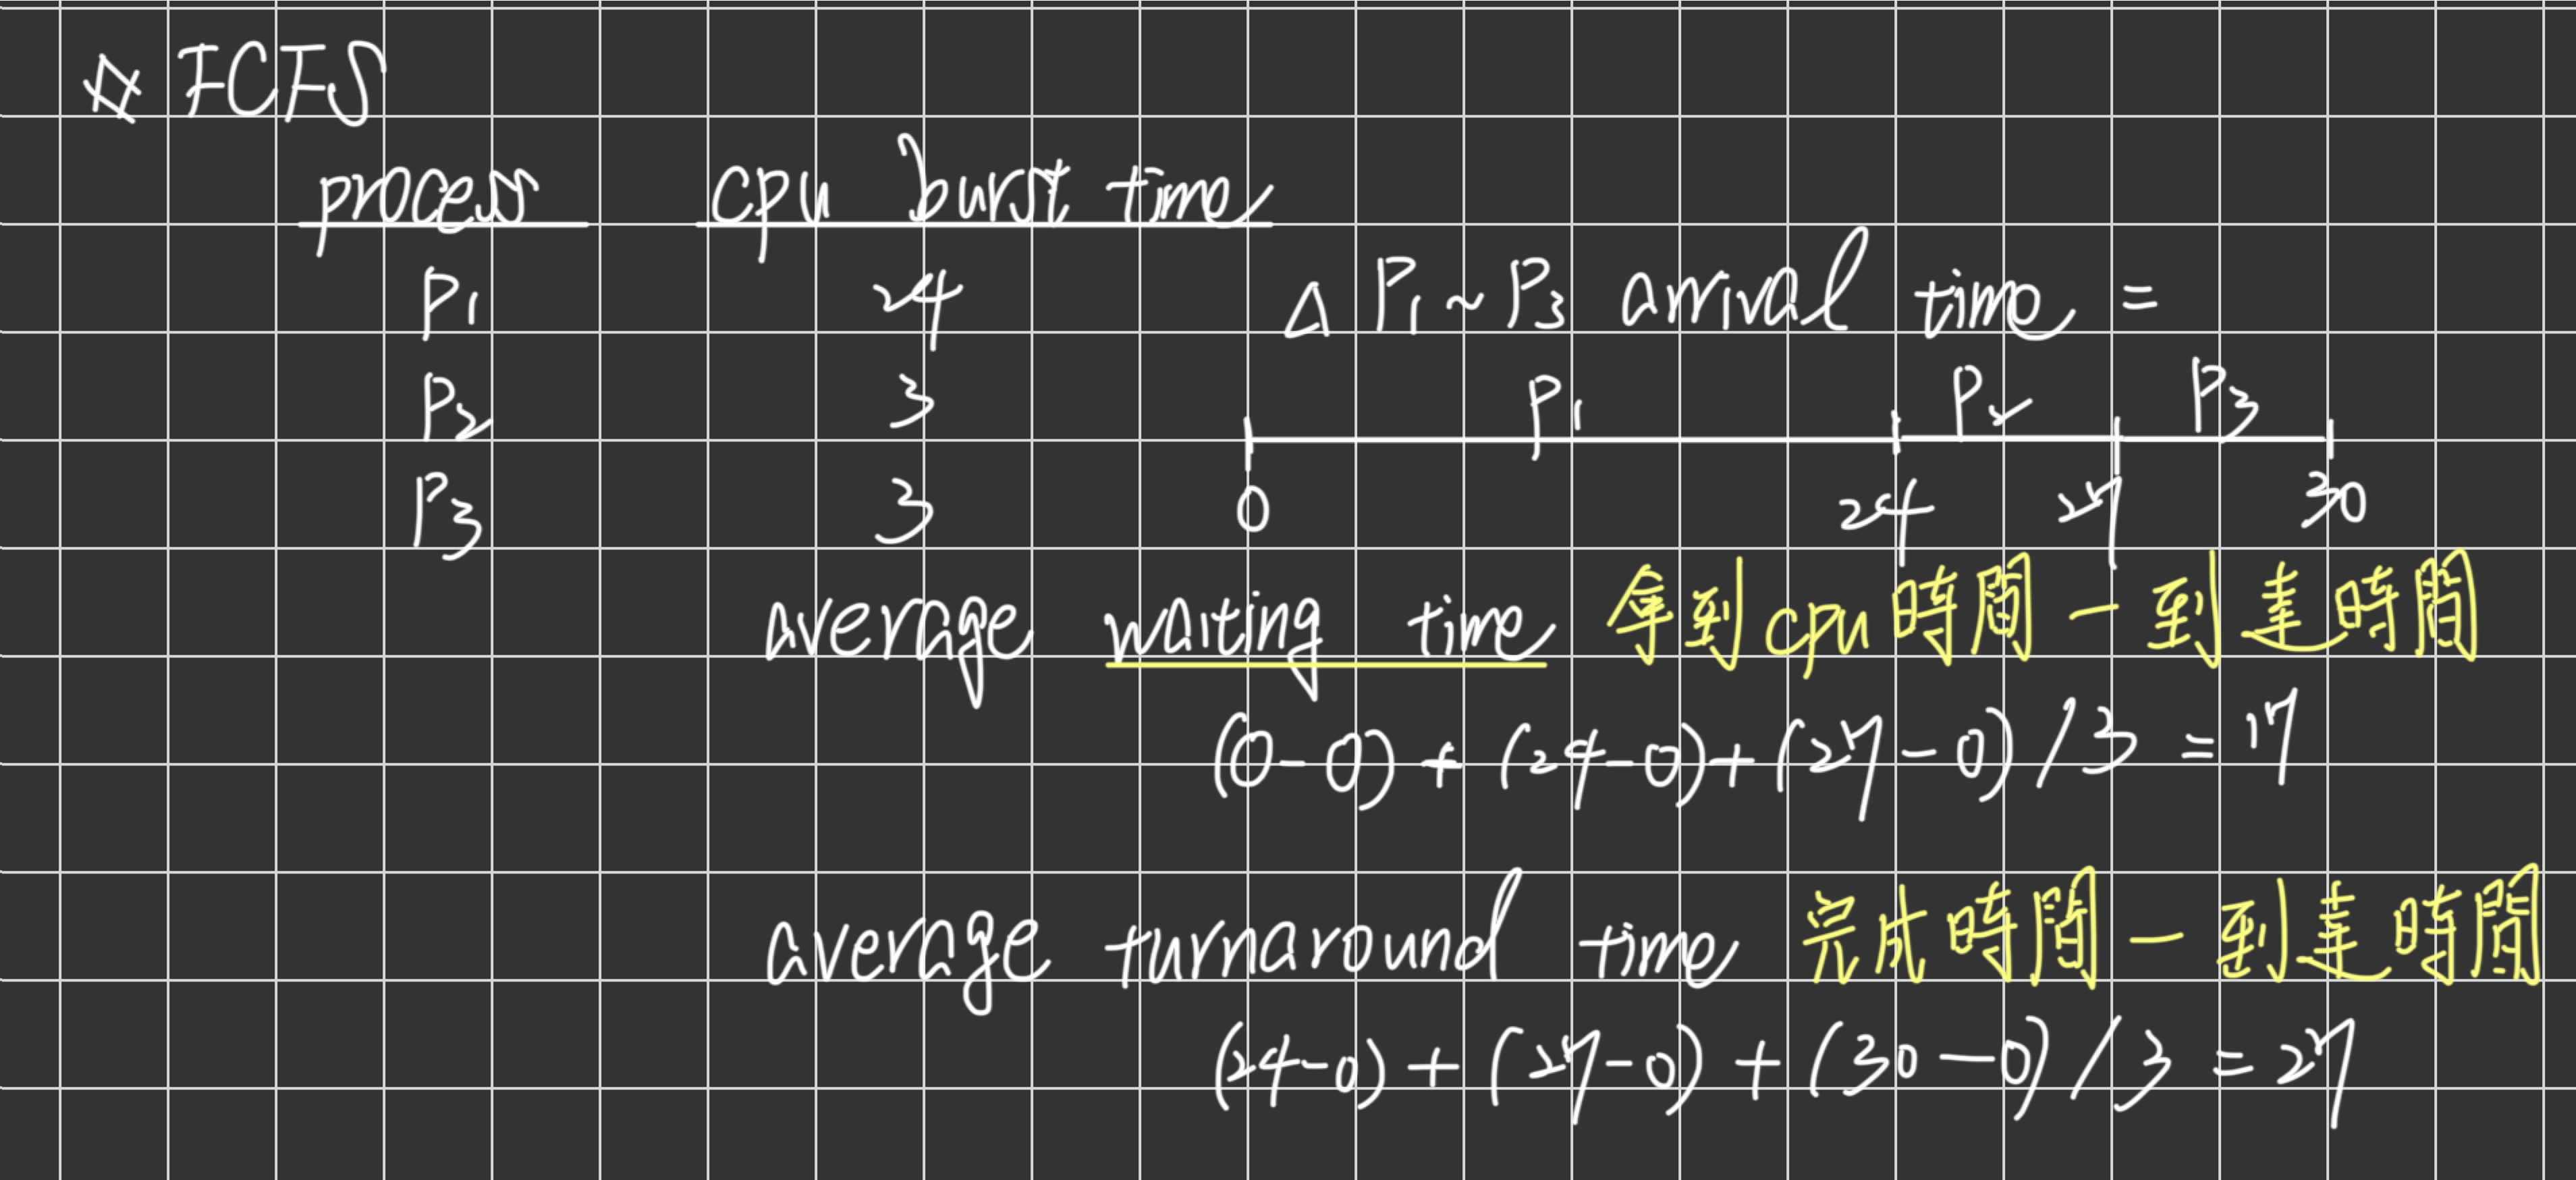 ☆ FCFS
process cpu burst time
P1 24
△ P1 ~ P3 arrival time =
P2 3
P1 P2 P3
P3 3
0 24 27 30
average waiting time 拿到cpu時間 - 到達時間
(0-0) + (24-0) + (27-0) / 3 = 17
average turnaround time 完成時間 - 到達時間
(24-0) + (27-0) + (30-0) / 3 = 27